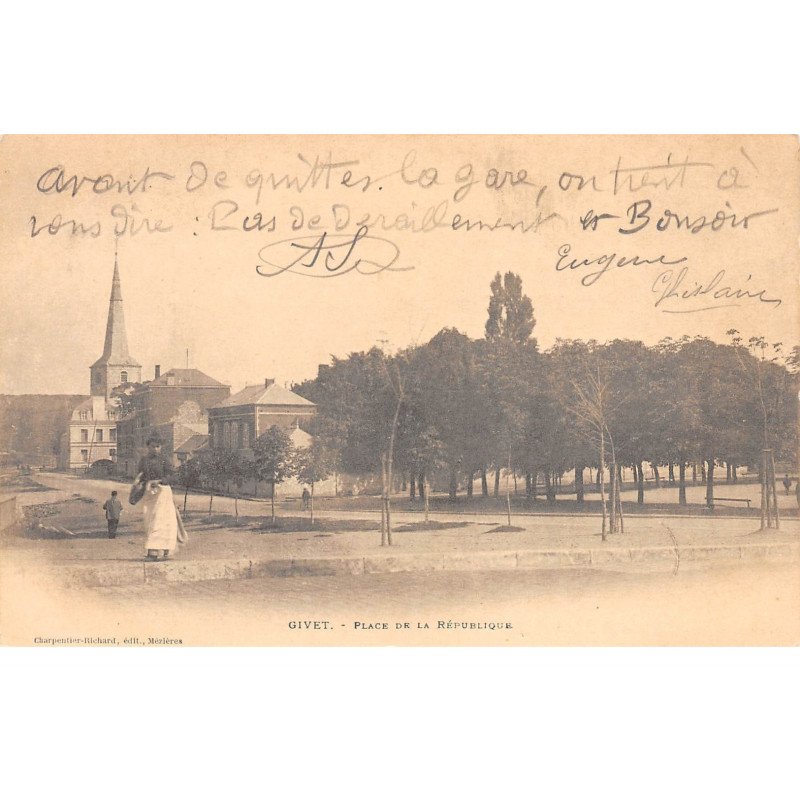 avant de quitter la gare, on tient à
vous dire : Pas de deraillement et Bonsoir
Eugene
Ghislain
GIVET. - PLACE DE LA RÉPUBLIQUE
Charpentier-Richard, édit., Mézières